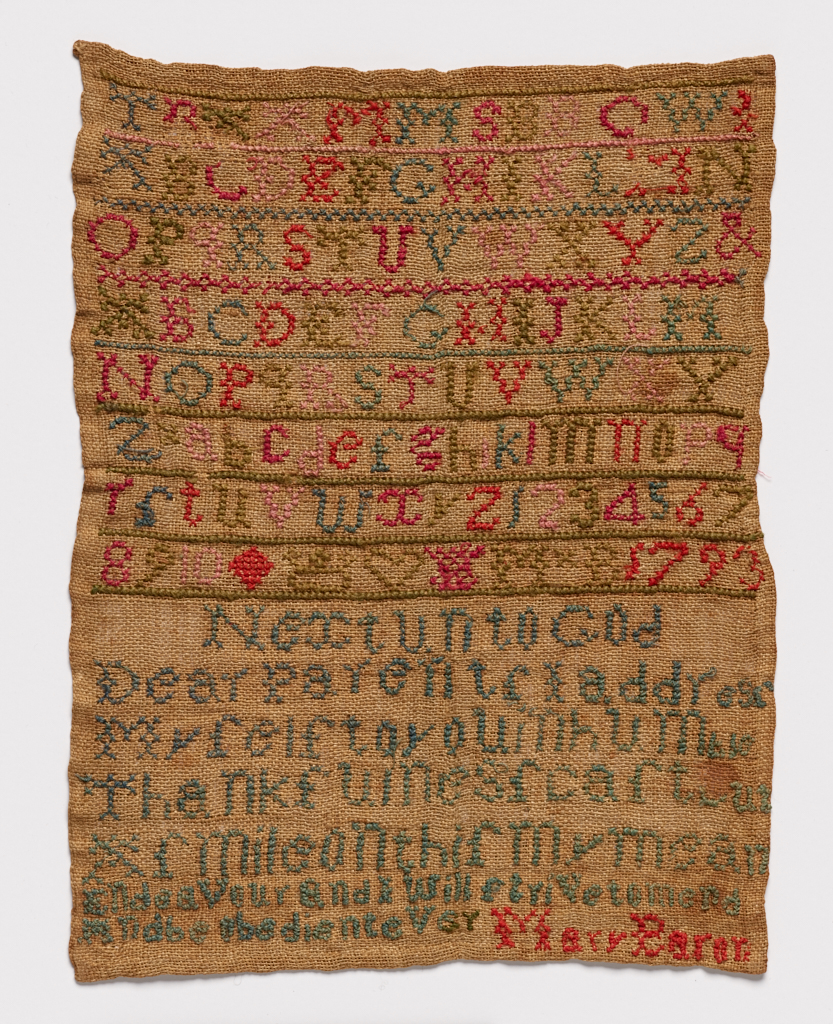 M M S B B C W
A B C D E F G H I K L M N
O P Q R S T U V W X Y Z &
A B C D E F G H I J K L M
N O P Q R S T U V W X Y
Z a b c d e f g h i k l m n o p q
r ſ t u v w x y z 1 2 3 4 5 6 7
8 9 10 1793
Next unto God
Dear Parentſ I address
My ſelf to you in hum
Thankfulneſſ caſt but
A ſmile on thiſ my mean
Endeavour and i will ſtrive to mend
And be obedient ever Mary Baron